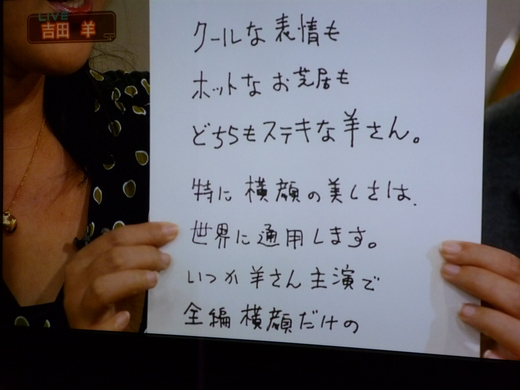 LIVE
吉田 羊
クールな表情も
ホットなお芝居も
どちらもステキな羊さん。
特に横顔の美しさは、
世界に通用します。
いつか羊さん主演で
全編横顔だけの